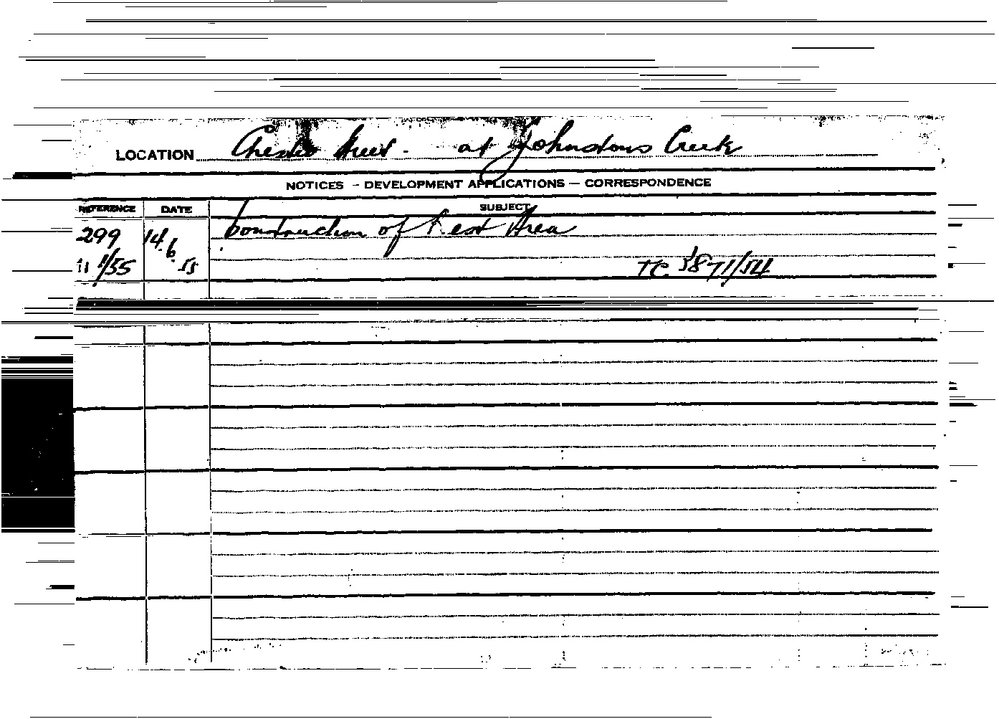 LOCATION Chester Street - at Johnstons Creek
NOTICES - DEVELOPMENT APPLICATIONS - CORRESPONDENCE
REFERENCE DATE SUBJECT
299 14.6 Construction of Rest Area
1/55 .55 TC 3871/54